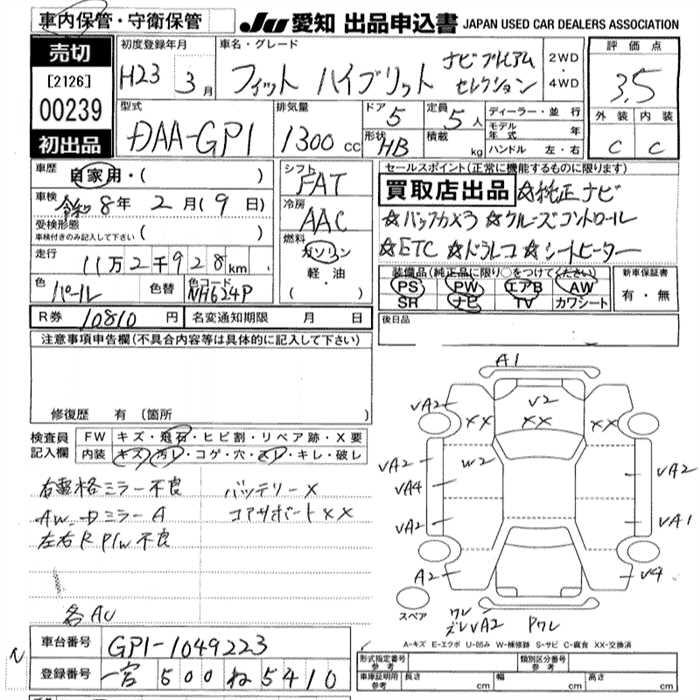 車内保管・守衛保管
JU 愛知 出品申込書 JAPAN USED CAR DEALERS ASSOCIATION
売切
[2126]
00239
初出品
初度登録年月
H23 3月
車名・グレード
フィット ハイブリット ナビプレミアム
セレクション
2WD
・
4WD
評価点
3.5
外装 内装
C C
型式
DAA-GP1
排気量
1300 CC
ドア 5
定員 5人
形状 HB
積載 kg
ディーラー・並行
モデル年式 年
ハンドル 左・右
車歴
自家用・( )
車検
令和8年 2月(9日)
受検形態
車検付きのみ記入して下さい ( )
走行
11万2千928km
色 パール
色替
色コード NH624P
シフト
FAT
冷房
AAC
燃料
ガソリン
軽油
・( )
セールスポイント(正常に機能するものに限ります)
買取店出品 ☆純正ナビ
☆バックカメラ ☆クルーズコントロール
☆ETC ☆ドラレコ ☆シートヒーター
装備品(純正品に限り○をつけてください)
PS PW エアB AW
SR ナビ TV カワシート
新車保証書
有・無
R券 10810円
名変通知期限 月 日
後日品
注意事項申告欄(不具合内容等は具体的に記入して下さい)
修復歴 有(箇所 )
検査員記入欄
FW キズ・飛石・ヒビ割・リペア跡・X要
内装 キズ・汚レ・コゲ・穴・スレ・キレ・破レ
右電格ミラー不良 バッテリーX
AW.Dミラー A コアサポートXX
左右R P/W 不良
各AU
A1
VA2
V2
XX XX XX
VA2
W2
VA2
VA4
VA2
VA1
A2
V4
スペア
ワレ
VA2 Pワレ
A-キズ E-エクボ U-凹み W-補修跡 S-サビ C-腐食 XX-交換済
車台番号 GP1-1049223
登録番号 一宮 500 ね 5410
形式指定番号 参考
類別区分番号 参考
車庫証明用 参考
長さ cm 幅 cm 高さ cm